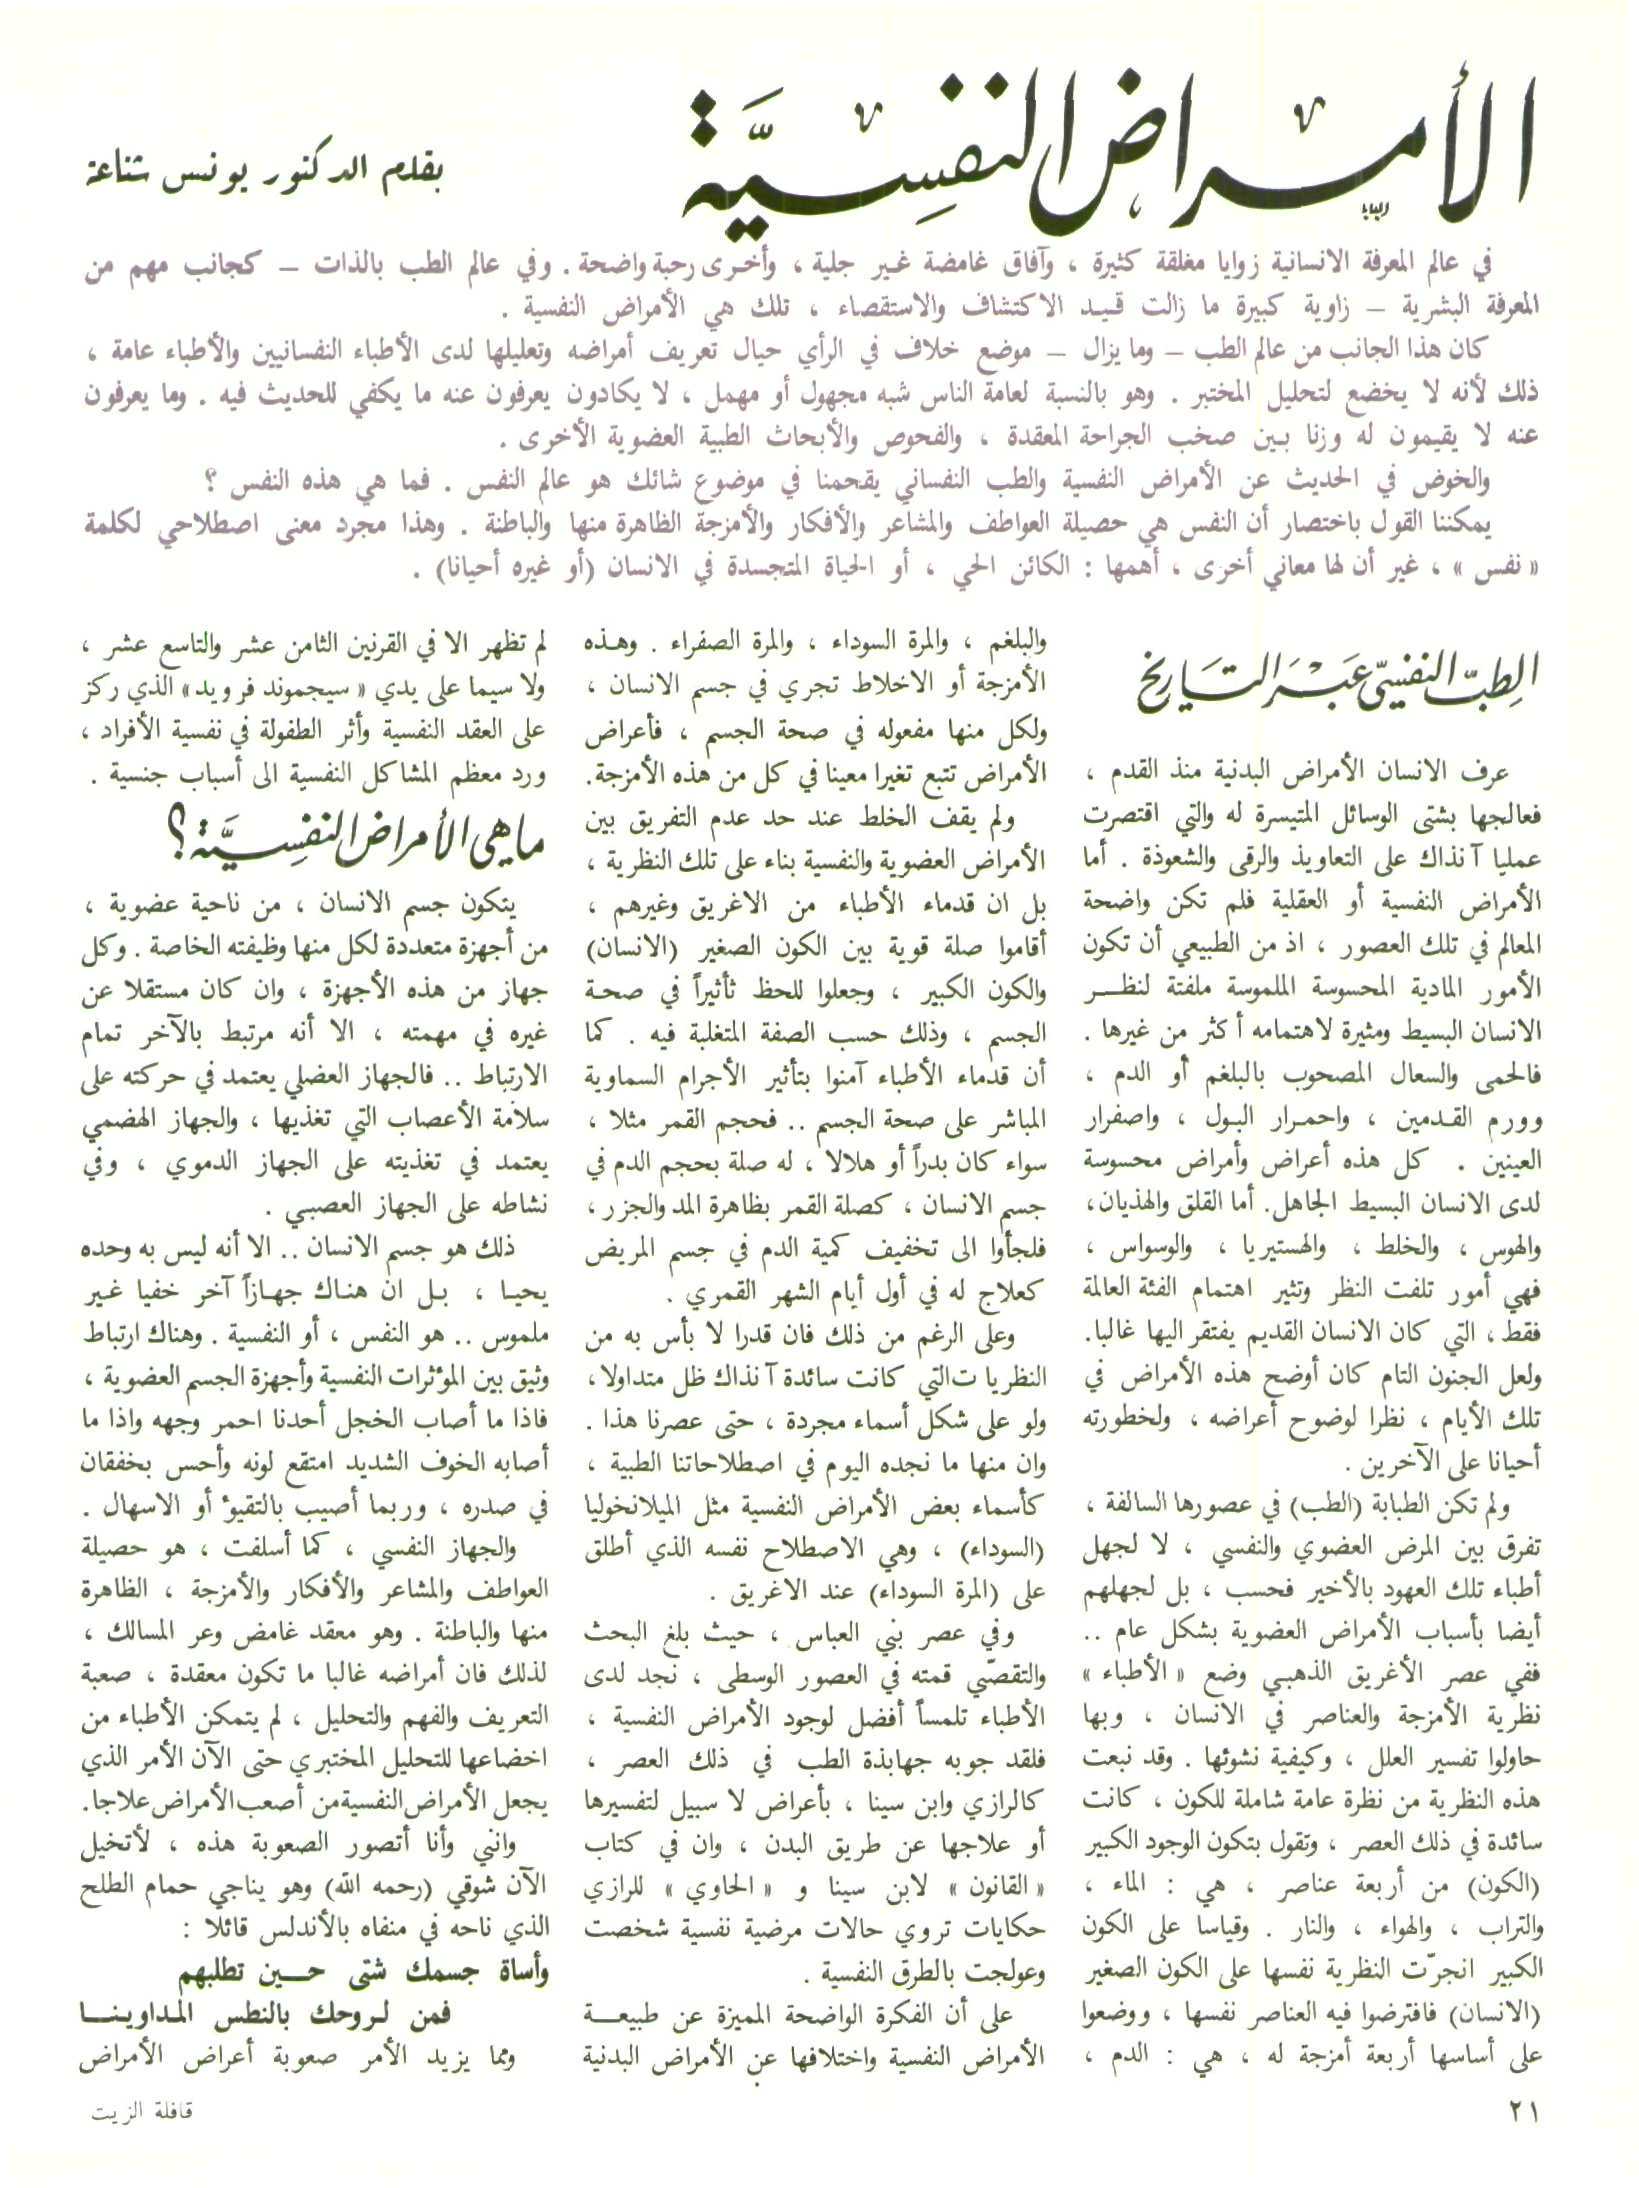 الأمراض النفسيَّة
بقلم الدكتور يونس شناعة
في عالم المعرفة الانسانية زوايا مغلقة كثيرة ، وآفاق غامضة غير جلية ، وأخرى رحبة واضحة . وفي عالم الطب بالذات – كجانب مهم من
المعرفة البشرية – زاوية كبيرة ما زالت قيد الاكتشاف والاستقصاء ، تلك هي الأمراض النفسية .
كان هذا الجانب من عالم الطب – وما يزال – موضع خلاف في الرأي حيال تعريف أمراضه وتعليلها لدى الأطباء النفسانيين والأطباء عامة ،
ذلك لأنه لا يخضع لتحليل المختبر . وهو بالنسبة لعامة الناس شبه مجهول أو مهمل ، لا يكادون يعرفون عنه ما يكفي للحديث فيه . وما يعرفون
عنه لا يقيمون له وزنا بين صخب الجراحة المعقدة ، والفحوص والأبحاث الطبية العضوية الأخرى .
والخوض في الحديث عن الأمراض النفسية والطب النفساني يقحمنا في موضوع شائك هو عالم النفس . فما هي هذه النفس ؟
يمكننا القول باختصار أن النفس هي حصيلة العواطف والمشاعر والأفكار والأمزجة الظاهرة منها والباطنة . وهذا مجرد معنى اصطلاحي لكلمة
« نفس » ، غير أن لها معاني أخرى ، أهمها : الكائن الحي ، أو الحياة المتجسدة في الانسان (أو غيره أحيانا) .
الطبّ النفسيّ عبر التاريخ
عرف الانسان الأمراض البدنية منذ القدم ،
فعالجها بشتى الوسائل المتيسرة له والتي اقتصرت
عمليا آنذاك على التعاويذ والرقى والشعوذة . أما
الأمراض النفسية أو العقلية فلم تكن واضحة
المعالم في تلك العصور ، اذ من الطبيعي أن تكون
الأمور المادية المحسوسة الملموسة ملفتة لنظر
الانسان البسيط ومثيرة لاهتمامه أكثر من غيرها .
فالحمى والسعال المصحوب بالبلغم أو الدم ،
وورم القدمين ، واحمرار البول ، واصفرار
العينين . كل هذه أعراض وأمراض محسوسة
لدى الانسان البسيط الجاهل. أما القلق والهذيان،
والهوس ، والخلط ، والهستيريا ، والوسواس ،
فهي أمور تلفت النظر وتثير اهتمام الفئة العالمة
فقط، التي كان الانسان القديم يفتقر اليها غالبا.
ولعل الجنون التام كان أوضح هذه الأمراض في
تلك الأيام ، نظرا لوضوح أعراضه ، ولخطورته
أحيانا على الآخرين .
ولم تكن الطبابة (الطب) في عصورها السالفة ،
تفرق بين المرض العضوي والنفسي ، لا لجهل
أطباء تلك العهود بالأخير فحسب ، بل لجهلهم
أيضا بأسباب الأمراض العضوية بشكل عام ..
ففي عصر الأغريق الذهبي وضع « الأطباء »
نظرية الأمزجة والعناصر في الانسان ، وبها
حاولوا تفسير العلل ، وكيفية نشوئها . وقد نبعت
هذه النظرية من نظرة عامة شاملة للكون ، كانت
سائدة في ذلك العصر ، وتقول بتكون الوجود الكبير
(الكون) من أربعة عناصر ، هي : الماء ،
والتراب ، والهواء ، والنار . وقياسا على الكون
الكبير انجرّت النظرية نفسها على الكون الصغير
(الانسان) فافترضوا فيه العناصر نفسها ، ووضعوا
على أساسها أربعة أمزجة له ، هي : الدم ،
والبلغم ، والمرة السوداء ، والمرة الصفراء . وهذه
الأمزجة أو الاخلاط تجري في جسم الانسان ،
ولكل منها مفعوله في صحة الجسم ، فأعراض
الأمراض تتبع تغيرا معينا في كل من هذه الأمزجة.
ولم يقف الخلط عند حد عدم التفريق بين
الأمراض العضوية والنفسية بناء على تلك النظرية ،
بل ان قدماء الأطباء من الاغريق وغيرهم ،
أقاموا صلة قوية بين الكون الصغير (الانسان)
والكون الكبير ، وجعلوا للحظ تأثيراً في صحة
الجسم ، وذلك حسب الصفة المتغلبة فيه . كما
أن قدماء الأطباء آمنوا بتأثير الأجرام السماوية
المباشر على صحة الجسم .. فحجم القمر مثلا ،
سواء كان بدراً أو هلالا ، له صلة بحجم الدم في
جسم الانسان ، كصلة القمر بظاهرة المد والجزر ،
فلجأوا الى تخفيف كمية الدم في جسم المريض
كعلاج له في أول أيام الشهر القمري .
وعلى الرغم من ذلك فان قدرا لا بأس به من
النظريا ت التي كانت سائدة آنذاك ظل متداولا،
ولو على شكل أسماء مجردة ، حتى عصرنا هذا .
وان منها ما نجده اليوم في اصطلاحاتنا الطبية ،
كأسماء بعض الأمراض النفسية مثل الميلانخوليا
(السوداء) ، وهي الاصطلاح نفسه الذي أطلق
على (المرة السوداء) عند الاغريق .
وفي عصر بني العباس ، حيث بلغ البحث
والتقصّي قمته في العصور الوسطى ، نجد لدى
الأطباء تلمساً أفضل لوجود الأمراض النفسية ،
فلقد جوبه جهابذة الطب في ذلك العصر ،
كالرازي وابن سينا ، بأعراض لا سبيل لتفسيرها
أو علاجها عن طريق البدن ، وان في كتاب
« القانون » لابن سينا و « الحاوي » للرازي
حكايات تروي حالات مرضية نفسية شخصت
وعولجت بالطرق النفسية .
على أن الفكرة الواضحة المميزة عن طبيعة
الأمراض النفسية واختلافها عن الأمراض البدنية
لم تظهر الا في القرنين الثامن عشر والتاسع عشر ،
ولا سيما على يدي « سيجموند فرويد» الذي ركز
على العقد النفسية وأثر الطفولة في نفسية الأفراد ،
ورد معظم المشاكل النفسية الى أسباب جنسية .
ما هي الأمراض النفسيَّة ؟
يتكون جسم الانسان ، من ناحية عضوية ،
من أجهزة متعددة لكل منها وظيفته الخاصة . وكل
جهاز من هذه الأجهزة ، وان كان مستقلا عن
غيره في مهمته ، الا أنه مرتبط بالآخر تمام
الارتباط .. فالجهاز العضلي يعتمد في حركته على
سلامة الأعصاب التي تغذيها ، والجهاز الهضمي
يعتمد في تغذيته على الجهاز الدموي ، وفي
نشاطه على الجهاز العصبي .
ذلك هو جسم الانسان .. الا أنه ليس به وحده
يحيا ، بل ان هناك جهازاً آخر خفيا غير
ملموس .. هو النفس ، أو النفسية . وهناك ارتباط
وثيق بين المؤثرات النفسية وأجهزة الجسم العضوية ،
فاذا ما أصاب الخجل أحدنا احمر وجهه واذا ما
أصابه الخوف الشديد امتقع لونه وأحس بخفقان
في صدره ، وربما أصيب بالتقيؤ أو الاسهال .
والجهاز النفسي ، كما أسلفت ، هو حصيلة
العواطف والمشاعر والأفكار والأمزجة ، الظاهرة
منها والباطنة . وهو معقد غامض وعر المسالك ،
لذلك فان أمراضه غالبا ما تكون معقدة ، صعبة
التعريف والفهم والتحليل ، لم يتمكن الأطباء من
اخضاعها للتحليل المختبري حتى الآن الأمر الذي
يجعل الأمراض النفسية من أصعب الأمراض علاجا.
وانني وأنا أتصور الصعوبة هذه ، لأتخيل
الآن شوقي (رحمه الله) وهو يناجي حمام الطلح
الذي ناحه في منفاه بالأندلس قائلا :
وأساة جسمك شتى حين تطلبهم
فمن لروحك بالنطس المداوينا
ومما يزيد الأمر صعوبة أعراض الأمراض
٢١
قافلة الزيت